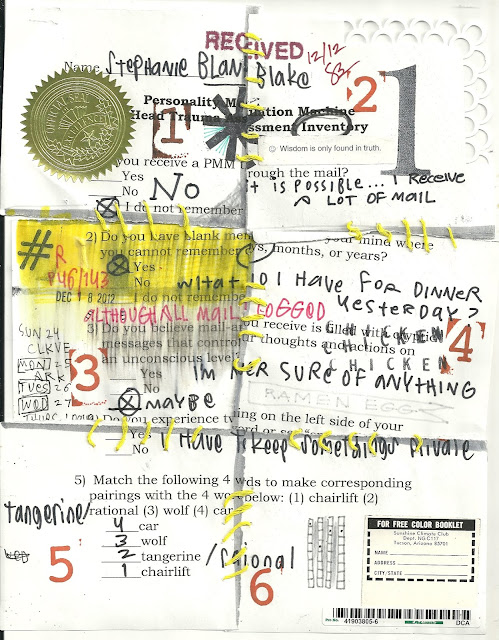 RECEIVED
12/12
SBF
Name Stephanie BLAN Blake
1
2
1
Personality M
ation Machine
Head Trauma
ssment Inventory
☺ Wisdom is only found in truth.
you receive a PMM
rough the mail?
Yes
No No
I do not remember
it is possible... I receive
A LOT OF MAIL
2) Do you have blank
your mind where
you cannot remember
ys, months, or years?
#
R
P46/143
DEC 18 2012
Yes
No
I do not remember
what DID I HAVE FOR DINNER
YESTERDAY?
ALTHOUGH ALL MAIL LOGGOD
3) Do you believe mail-ar
you receive is filled with
messages that control
ur thoughts and actions on
an unconscious level
CHICKEN
CHICKEN
CHICKEN
4
SUN 24
MON 25
ARK
TUES 26
WED 27
3
Yes
No
MAYBE
I'm NEVER SURE OF ANYTHING
RAMEN EGG
Do you experience
ing on the left side of your
Yes
No
I HAVE to keep somethings private
5) Match the following 4 w
rds to make corresponding
pairings with the 4 wo
below: (1) chairlift (2)
tangerine/
rational (3) wolf (4) car
4 car
3 wolf
2 tangerine /rational
1 chairlift
5
6
FOR FREE COLOR BOOKLET
Sunshine Climate Club
Dept. NG C117
Tucson, Arizona 85701
NAME
ADDRESS
CITY/STATE
41903805-6
DCA